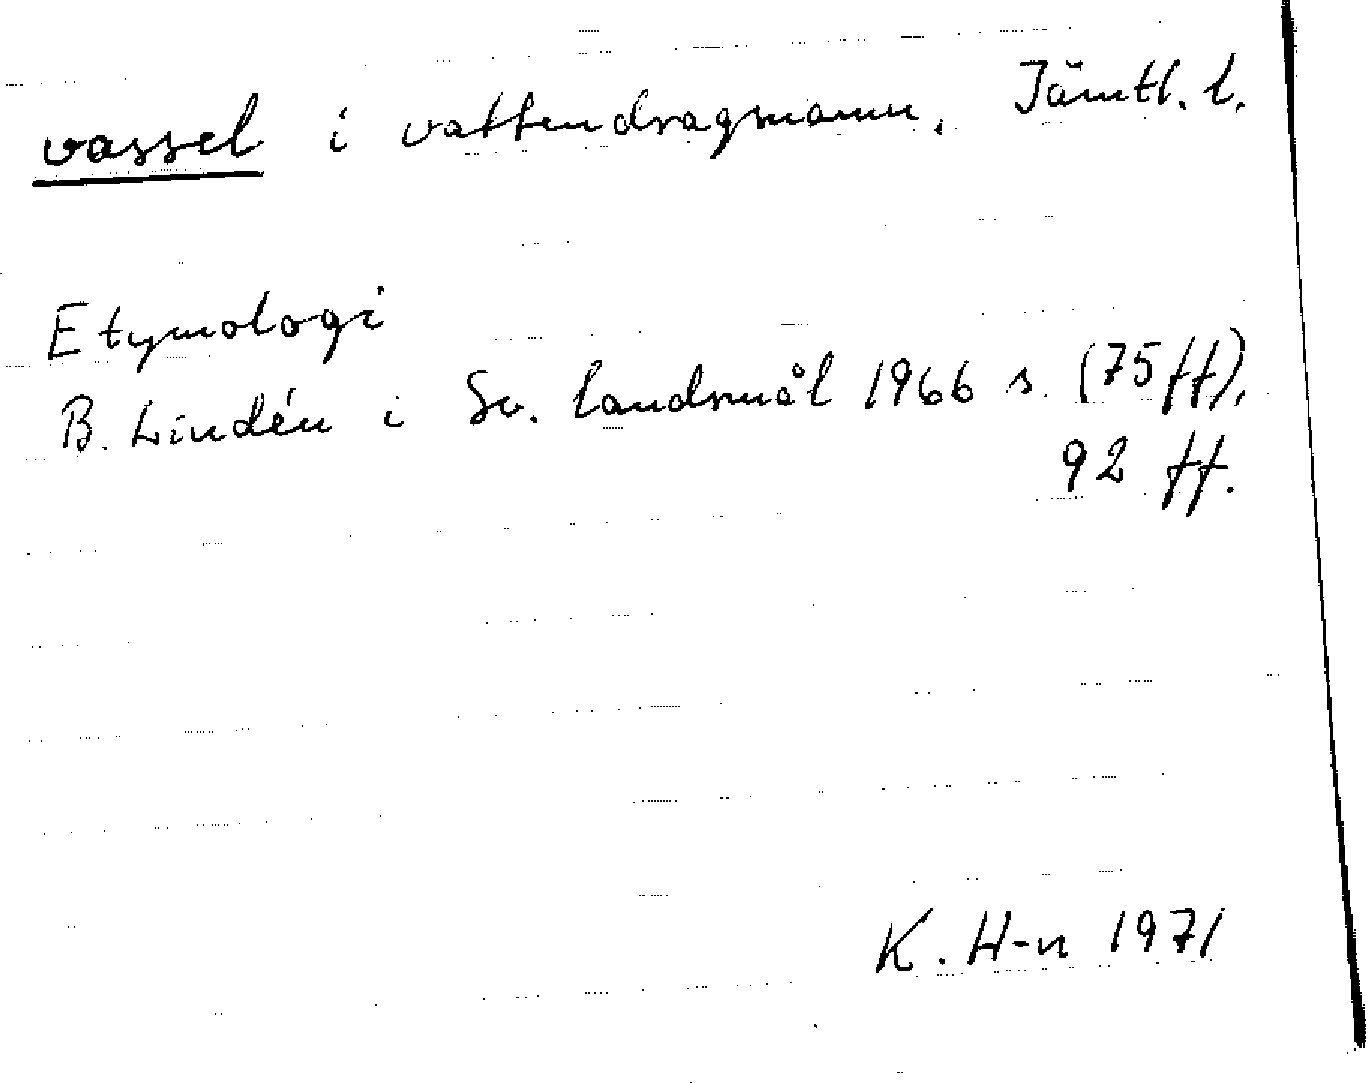 vassel i vattendragsnamn, Jämtl. l.
Etymologi
B. Lindén i Sv. landsmål 1966 s. (75 ff),
92 ff.
K. H-n 1971